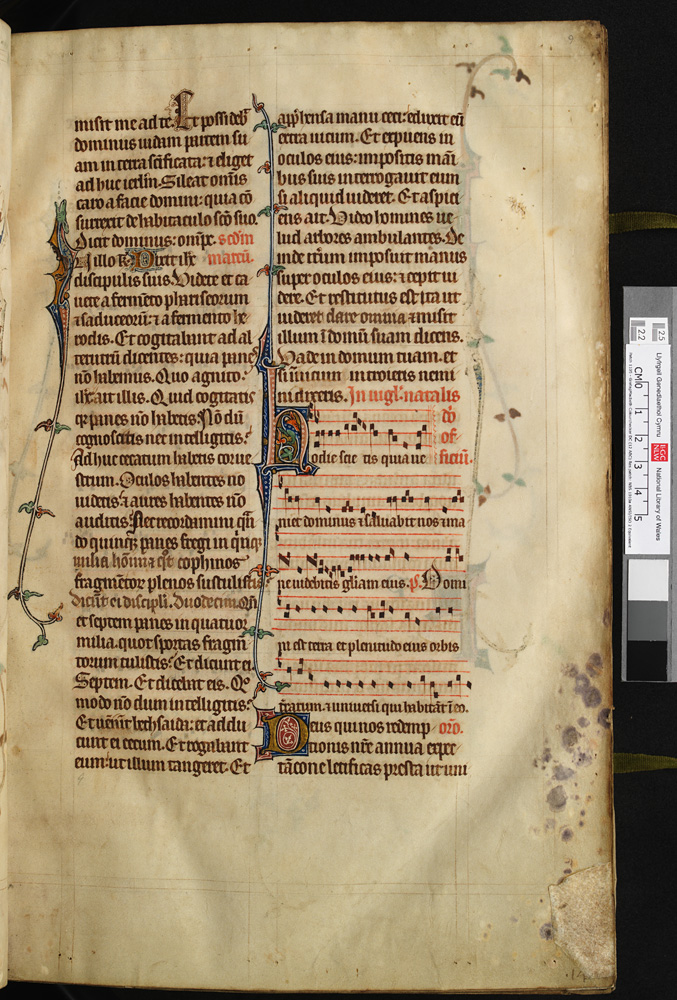 misit me ad te. Et possideb
dominus iudam partem su
am in terra scificata: ⁊ eliget
ad huc ierlm. Sileat omnis
caro a facie domini: quia co
surrexit de habitaculo sco suo.
Dicit dominus: omps. scdm
In illo t. Dixit ihc matcu.
discipulis suis. Videte et ca
uete a fermeto phariseorum
⁊ saduceoru: ⁊ a fermento he
rodis. Et cogitabant ad al
terutru dicentes: quia panes
no habemus. Quo agnito:
ihc ait illis. Quid cogitatis
qr panes no habetis: No du
cognoscitis nec intelligitis:
Adhuc cecatum habetis cor ue
strum. Oculos habentes no
uidetis: ⁊ aures habentes no
auditis. Nec recordamini qn
do quinq panes fregi in qnq
milia homu: ⁊ qot cophinos
fragmetor plenos sustulistis
Dicut ei discipli. duodecim. Qn
et septem panes in quatuor
milia. quot sportas fragm
torum tulistis: Et dicunt ei.
Septem. Et dicebat eis. Qo
modo no dum intelligitis:
Et uenit bethsaida: et addu
cunt ei cecum. Et rogabant
eum: ut illum tangeret. Et
apphensa manu ceci: eduxit eu
extra uicum. Et expuens in
oculos eius: impositis mani
bus suis interrogauit eum
si aliquid uideret. Et aspici
ens ait. Video homines ue
lud arbores ambulantes. De
inde iterum imposuit manus
super oculos eius: ⁊ cepit ui
dere. Et restitutus est ita ut
uideret clare omnia ⁊ misit
illum i domu suam dicens.
Vade in domum tuam. et
si i uicum introieris nemi
ni dixeris. In uigl: natalis
do
of
Hodie scie tis quia ue ficiu.
niet dominus ⁊ saluabit nos ⁊ ma
ne uidebitis gliam eius. ps. Domi
ni est terra et plenitudo eius orbis
terrarum. ⁊ uniuersi qui habitat i eo.
Deus qui nos redemp oro.
tionis nre annua expec
tacone letificas presta ut uni
Llyfrgell Genedlaethol Cymru
LLGC
NLW
National Library of Wales
CM 0 1 2 3 4 5
22
25